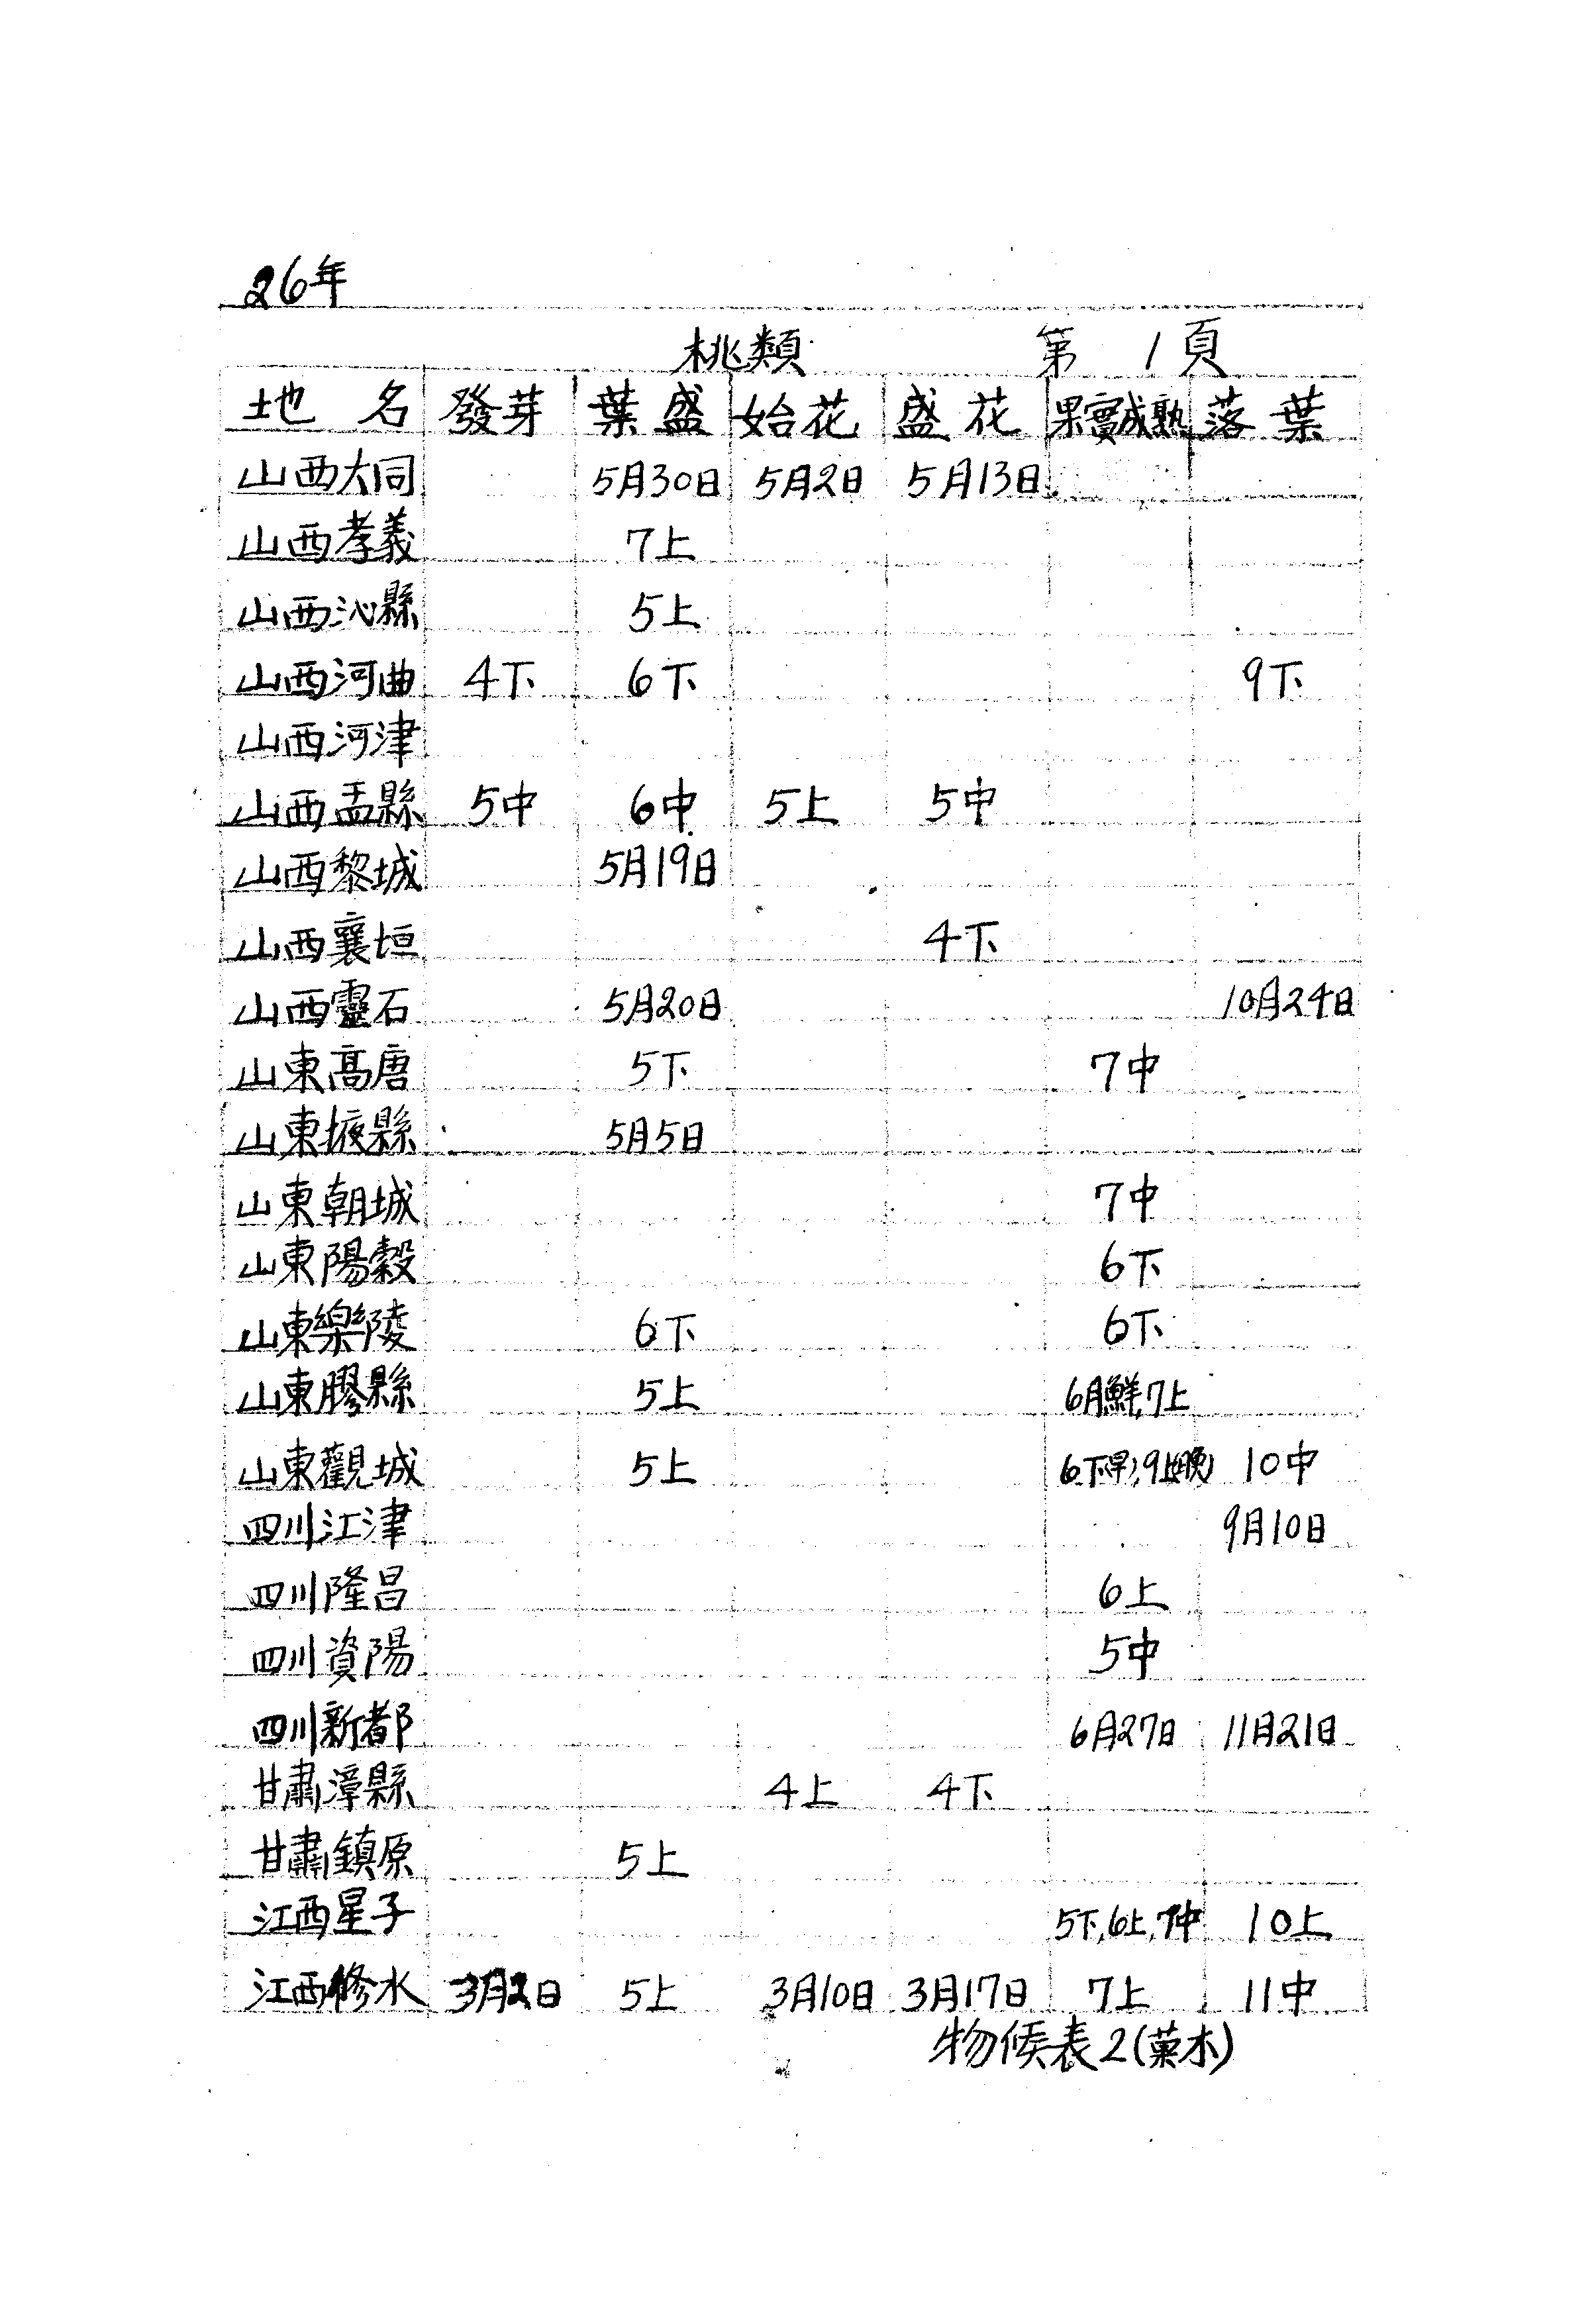 26年
桃類 第 1 頁
地 名 發芽 葉盛 始花 盛花 果實成熟 落葉
山西大同 5月30日 5月2日 5月13日
山西孝義 7上
山西沁縣 5上
山西河曲 4下 6下 9下
山西河津
山西盂縣 5中 6中 5上 5中
山西黎城 5月19日
山西襄垣 4下
山西靈石 5月20日 10月24日
山東高唐 5下 7中
山東掖縣 5月5日
山東朝城 7中
山東陽穀 6下
山東樂陵 6下 6下
山東膠縣 5上 6月鮮,7上
山東觀城 5上 6下(早),9上(晚) 10中
四川江津 9月10日
四川隆昌 6上
四川資陽 5中
四川新都 6月27日 11月21日
甘肅漳縣 4上 4下
甘肅鎮原 5上
江西星子 5下,6上,7中 10上
江西修水 3月2日 5上 3月10日 3月17日 7上 11中
物候表2(菓木)